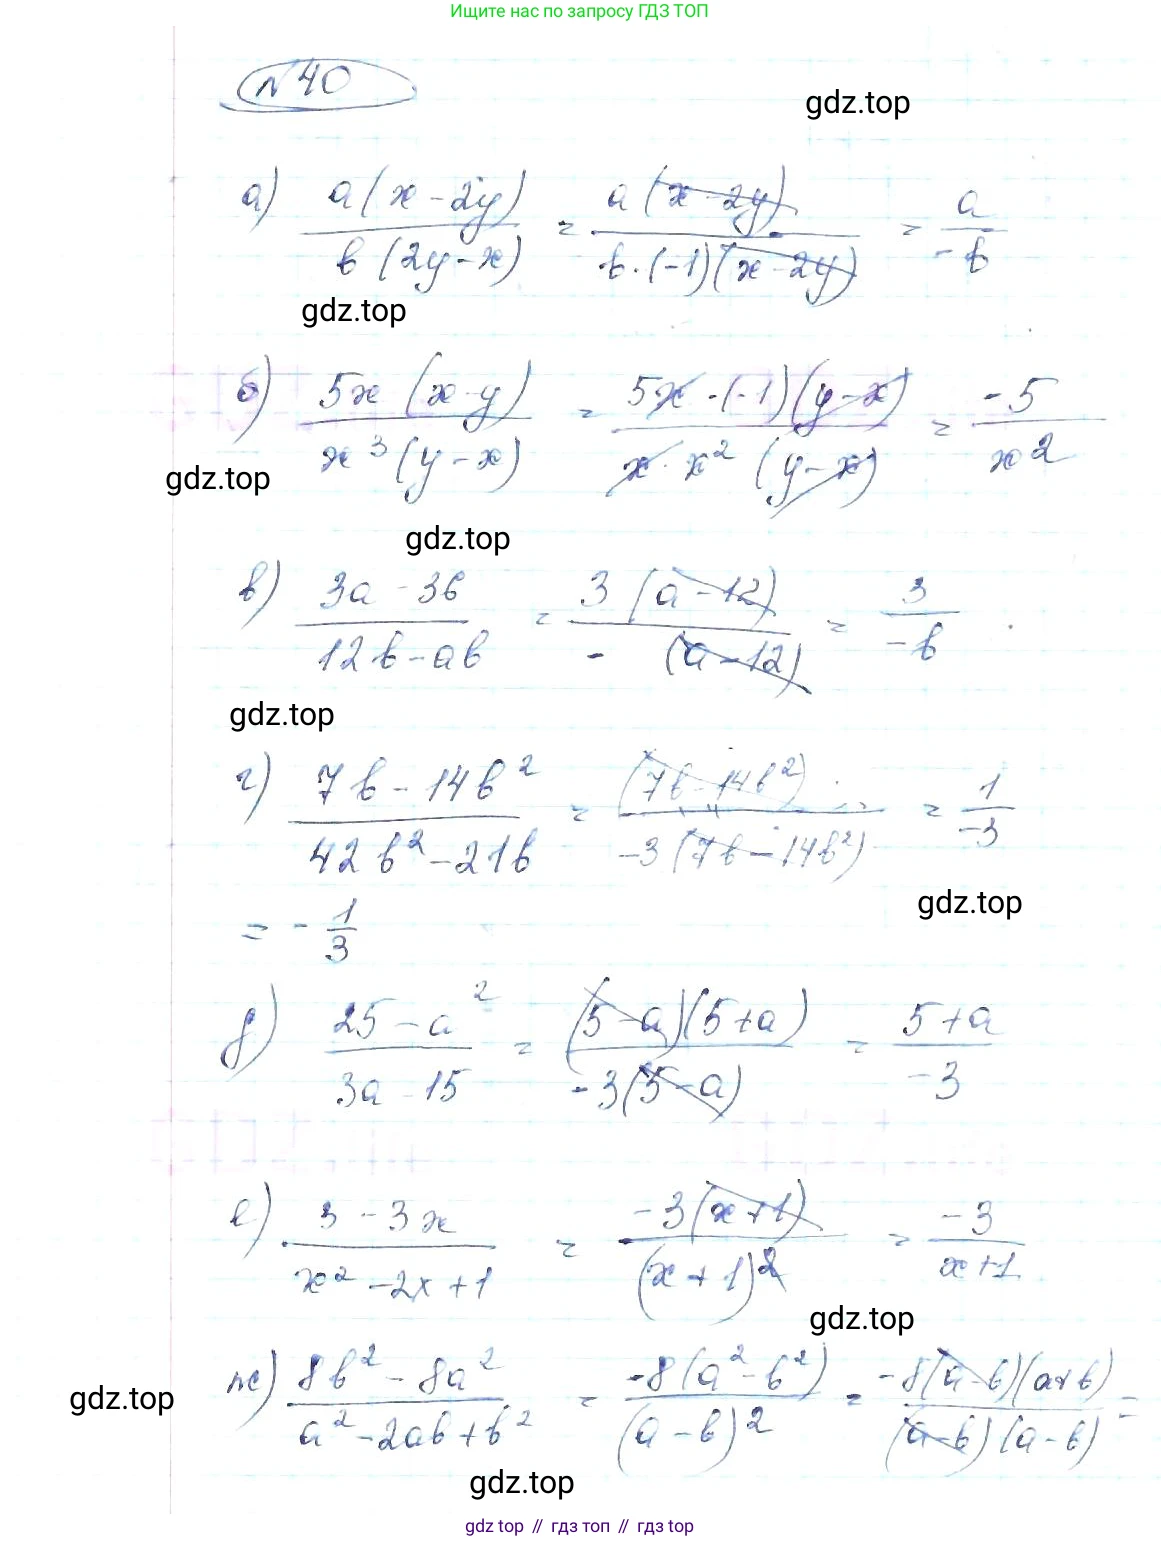 Ищите нас по запросу ГДЗ ТОП
№40
gdz.top
а) a(x-2y)/b(2y-x) = a(x-2y)/b·(-1)(x-2y) = a/-b
gdz.top
б) 5x(x-y)/x³(y-x) = 5x·(-1)(y-x)/x·x²(y-x) = -5/x²
gdz.top
gdz.top
в) 3a-36/12b-ab = 3(a-12)/-(a-12) = 3/-b
gdz.top
г) 7b-14b²/42b²-21b = (7b-14b²)/-3(7b-14b²) = 1/-3
gdz.top
= -1/3
д) 25-a²/3a-15 = (5-a)(5+a)/-3(5-a) = 5+a/-3
е) 3-3x/x²-2x+1 = -3(x+1)/(x+1)² = -3/x+1
gdz.top
ж) 8b²-8a²/a²-2ab+b² = -8(a²-b²)/(a-b)² = -8(a-b)(a+b)/(a-b)(a-b) =
gdz.top
gdz.top
gdz top // гдз топ // гдз top